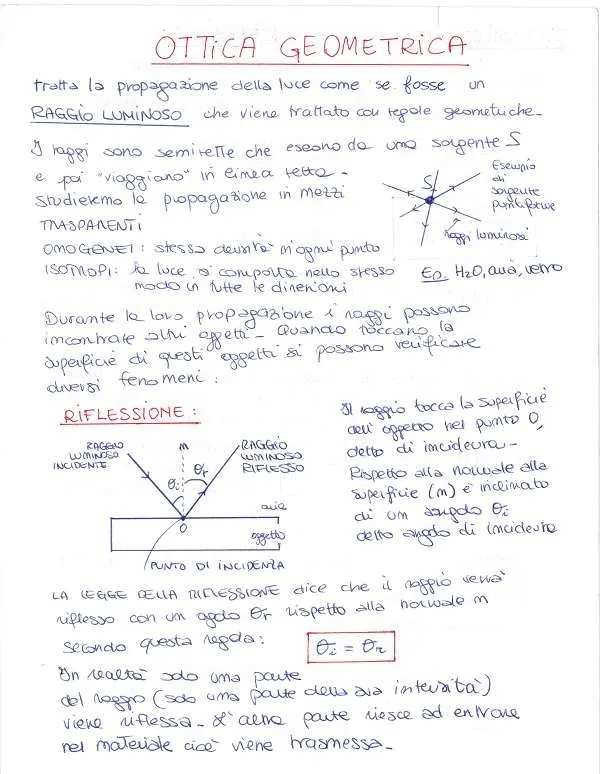 OTTICA GEOMETRICA
tratta la propagazione della luce come se fosse un
RAGGIO LUMINOSO che viene trattato con regole geometriche.
I raggi sono semirette che escono da una sorgente S
e poi "viaggiano" in linea retta.
Studieremo la propagazione in mezzi
TRASPARENTI
OMOGENEI: stessa densità in ogni punto
ISOTROPI: la luce si comporta nello stesso
modo in tutte le direzioni
S
Esempio
di
sorgente
puntiforme
raggi luminosi
Es. H2O, aria, vetro
Durante la loro propagazione i raggi possono
incontrare altri oggetti. Quando toccano la
superficie di questi oggetti si possono verificare
diversi fenomeni:
RIFLESSIONE:
RAGGIO
LUMINOSO
INCIDENTE
n
θi
θr
RAGGIO
LUMINOSO
RIFLESSO
aria
O
oggetto
PUNTO DI INCIDENZA
Il raggio tocca la superficie
dell'oggetto nel punto O,
detto di incidenza.
Rispetto alla normale alla
superficie (n) è inclinato
di un angolo θi
detto angolo di incidenza
LA LEGGE DELLA RIFLESSIONE dice che il raggio verrà
riflesso con un agolo θr rispetto alla normale n
secondo questa regola:
θi = θr
In realtà solo una parte
del raggio (solo una parte della sua intensità)
viene riflessa. L'altra parte riesce ad entrare
nel materiale cioè viene trasmessa.